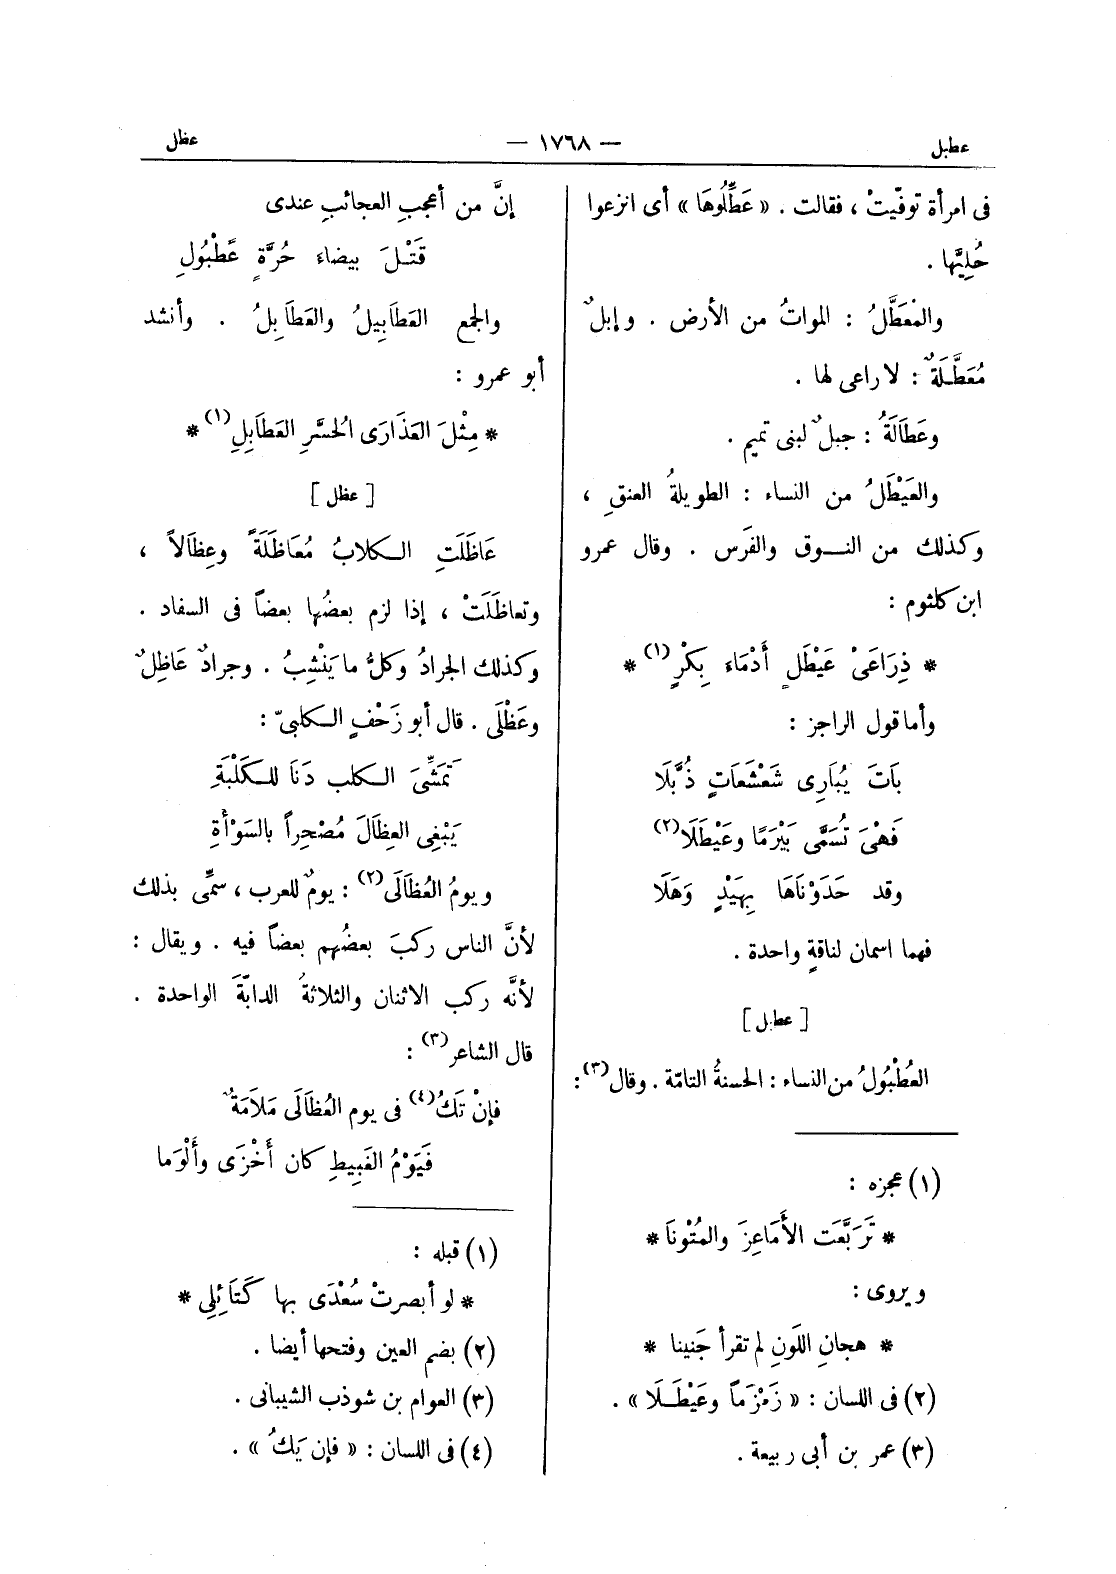 عطبل — ١٧٦٨ — عظل
فى امرأة توفّيتْ ، فقالت . « عَطِّلُوهَا » أى انزعوا
حُلِيَّها .
والمُعَطَّلُ : المواتُ من الأرض . وإبلٌ
مُعَطَّلَةٌ : لا راعى لها .
وعَطَالَةُ : جبلٌ لبنى تميم .
والعَيْطَلُ من النساء : الطويلةُ العنقِ ،
وكذلك من النـوق والفَرَس . وقال عمرو
ابن كلثوم :
* ذِرَاعَىْ عَيْطَلٍ أَدْمَاءَ بِكْرٍ(١) *
وأما قول الراجز :
بَاتَ يُبَارِى شَعْشَعَاتٍ ذُبَّلَا
فَهْىَ تُسَمَّى بَيْرَمًا وعَيْطَلَا(٢)
وقد حَدَوْنَاهَا بِهَيْدٍ وَهَلَا
فهما اسمان لناقةٍ واحدة .
[ عطبل ]
العُطْبُولُ من النساء : الحسنةُ التامّة . وقال(٣) :
(١) عجزه :
* تَرَبَّعَت الأَمَاعِزَ والمُتُونَا *
ويروى :
* هجانِ اللَونِ لم تقرأ جَنينا *
(٢) فى اللسان : « زَمْزَماً وعَيْطَـلَا » .
(٣) عمر بن أبى ربيعة .
إنَّ من أعجبِ العجائبِ عندى
قَتْـلَ بيضاءَ حُرَّةٍ عُطْبُولِ
والجمع العَطَابِيلُ والعَطَابِلُ . وأنشد
أبو عمرو :
* مِثْلَ العَذَارَى الحُسَّرِ العَطَابِلِ(١) *
[ عظل ]
عَاظَلَتِ الـكلابُ مُعَاظَلَةً وعِظَالاً ،
وتعاظَلَتْ ، إذا لزم بعضُها بعضاً فى السفاد .
وكذلك الجرادُ وكلُّ ما يَنْشِبُ . وجرادٌ عَاظِلٌ
وعَظْلَى . قال أبو زَحْفٍ الـكلبىّ :
تَمَشِّىَ الـكلب دَنَا للـكَلْبَةِ
يَبْغِى العِظَالَ مُصْحِراً بالسَوْأَةِ
ويومُ العُظَالَى(٢) : يومٌ للعرب ، سمِّى بذلك
لأنَّ الناس ركبَ بعضُهم بعضاً فيه . ويقال :
لأنَّه ركب الاثنان والثلاثةُ الدابّةَ الواحدة .
قال الشاعر(٣) :
فإنْ تَكُ(٤) فى يوم العُظَالَى مَلاَمَةٌ
فَيَوْمُ الغَبِيطِ كان أَخْزَى وأَلْوَما
(١) قبله :
* لو أبصرتْ سُعْدَى بها كَتَائِلِى *
(٢) بضم العين وفتحها أيضا .
(٣) العوام بن شوذب الشيبانى .
(٤) فى اللسان : « فإن يَكُ » .